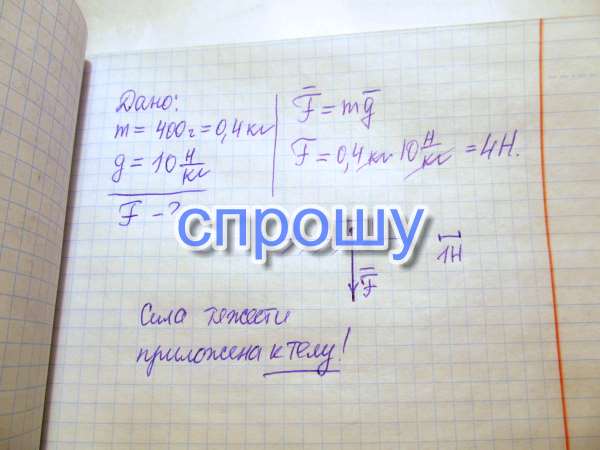 Дано:
m = 400г = 0,4 кг
g = 10 Н/кг
F - ?
F̄ = mḡ
F = 0,4 кг · 10 Н/кг = 4Н.
спрошу
F̄
1Н
Сила тяжести
приложена к телу!